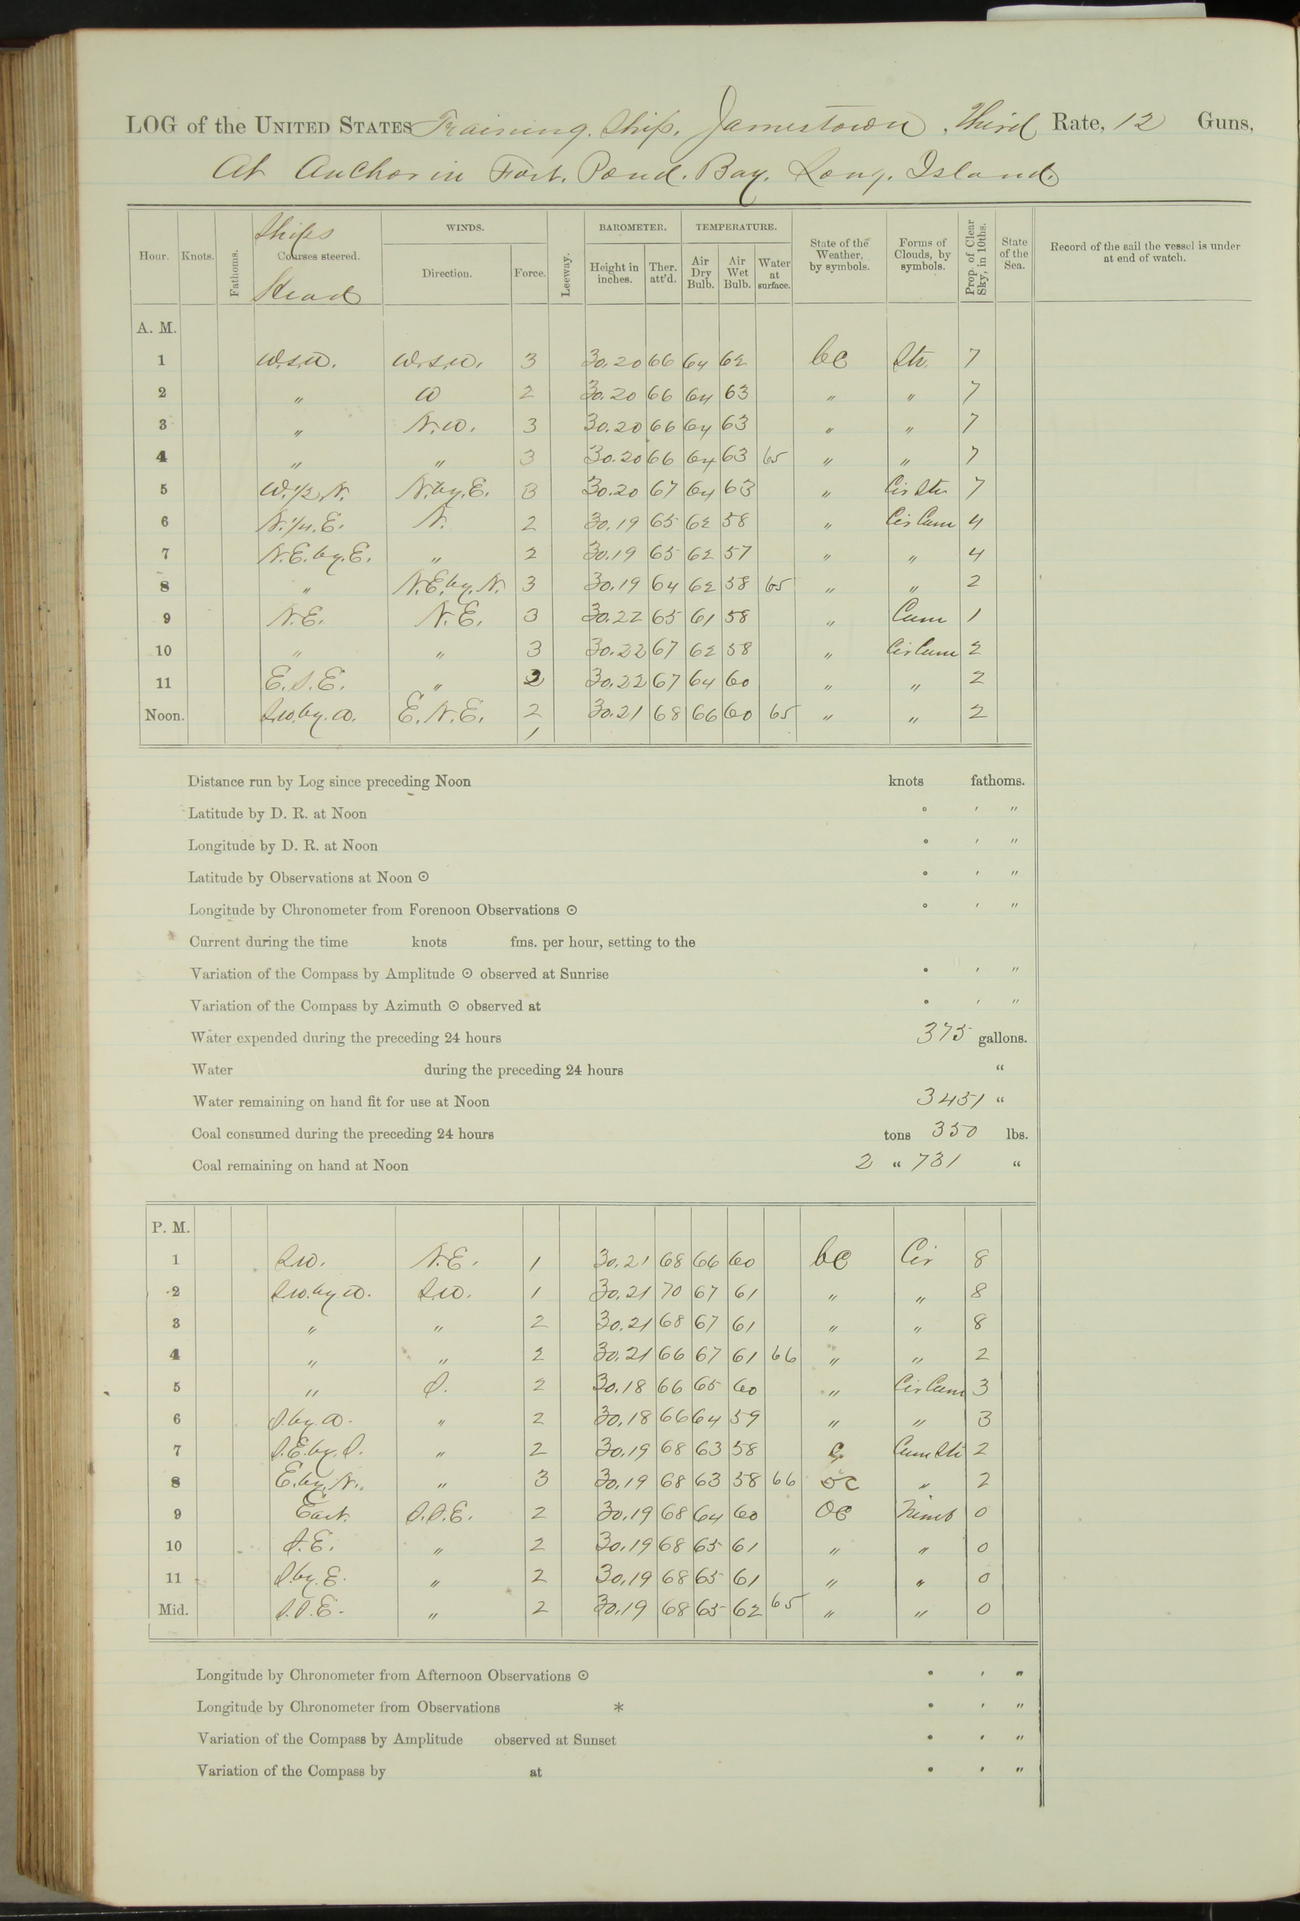 LOG of the UNITED STATES Training Ship, Jamestown, Third Rate, 12 Guns,
At Anchor in Fort Pond Bay, Long Island.
Ships
WINDS. BAROMETER. TEMPERATURE.
Hour. Knots. Fathoms. Courses steered. Direction. Force. Leeway. Height in inches. Ther. att'd. Air Dry Bulb. Air Wet Bulb. Water at surface. State of the Weather, by symbols. Forms of Clouds, by symbols. Prop. of Clear Sky, in 10ths. State of the Sea. Record of the sail the vessel is under at end of watch.
Head
A. M.
1 W.S.W. W.S.W. 3 30.20 66 64 62 bc Str. 7
2 " W 2 30.20 66 64 63 " " 7
3 " N.W. 3 30.20 66 64 63 " " 7
4 " " 3 30.20 66 64 63 65 " " 7
5 W.1/2.N. N.by.E. 3 30.20 67 64 63 " Cir Str 7
6 N.1/4.E. N. 2 30.19 65 62 58 " Cir Cum 4
7 N.E.by.E. " 2 30.19 65 62 57 " " 4
8 " N.E.by.N. 3 30.19 64 62 58 65 " " 2
9 N.E. N.E. 3 30.22 65 61 58 " Cum 1
10 " " 3 30.22 67 62 58 " Cir Cum 2
11 E.S.E. " 2 30.22 67 64 60 " " 2
Noon. S.W.by.W. E.N.E. 2 30.21 68 66 60 65 " " 2
1
Distance run by Log since preceding Noon knots fathoms.
Latitude by D. R. at Noon ° ′ ″
Longitude by D. R. at Noon ° ′ ″
Latitude by Observations at Noon ⊙ ° ′ ″
Longitude by Chronometer from Forenoon Observations ⊙ ° ′ ″
Current during the time knots fms. per hour, setting to the
Variation of the Compass by Amplitude ⊙ observed at Sunrise ° ′ ″
Variation of the Compass by Azimuth ⊙ observed at ° ′ ″
Water expended during the preceding 24 hours 375 gallons.
Water during the preceding 24 hours “
Water remaining on hand fit for use at Noon 3451 “
Coal consumed during the preceding 24 hours tons 350 lbs.
Coal remaining on hand at Noon 2 “ 731 “
P. M.
1 S.W. N.E. 1 30.21 68 66 60 bc Cir 8
2 S.W.by.W. S.W. 1 30.21 70 67 61 " " 8
3 " " 2 30.21 68 67 61 " " 8
4 " " 2 30.21 66 67 61 66 " " 2
5 " S. 2 30.18 66 65 60 " Cir Cum 3
6 S.by.W. " 2 30.18 66 64 59 " " 3
7 S.E.by.S. " 2 30.19 68 63 58 Cum Str 2
8 E.by.N. " 3 30.19 68 63 58 66 oc " 2
9 East. S.S.E. 2 30.19 68 64 60 oc Nimb 0
10 S.E. " 2 30.19 68 65 61 " " 0
11 S.by.E. " 2 30.19 68 65 61 " " 0
Mid. S.S.E. " 2 30.19 68 65 62 65 " " 0
Longitude by Chronometer from Afternoon Observations ⊙ ° ′ ″
Longitude by Chronometer from Observations * ° ′ ″
Variation of the Compass by Amplitude observed at Sunset ° ′ ″
Variation of the Compass by at ° ′ ″